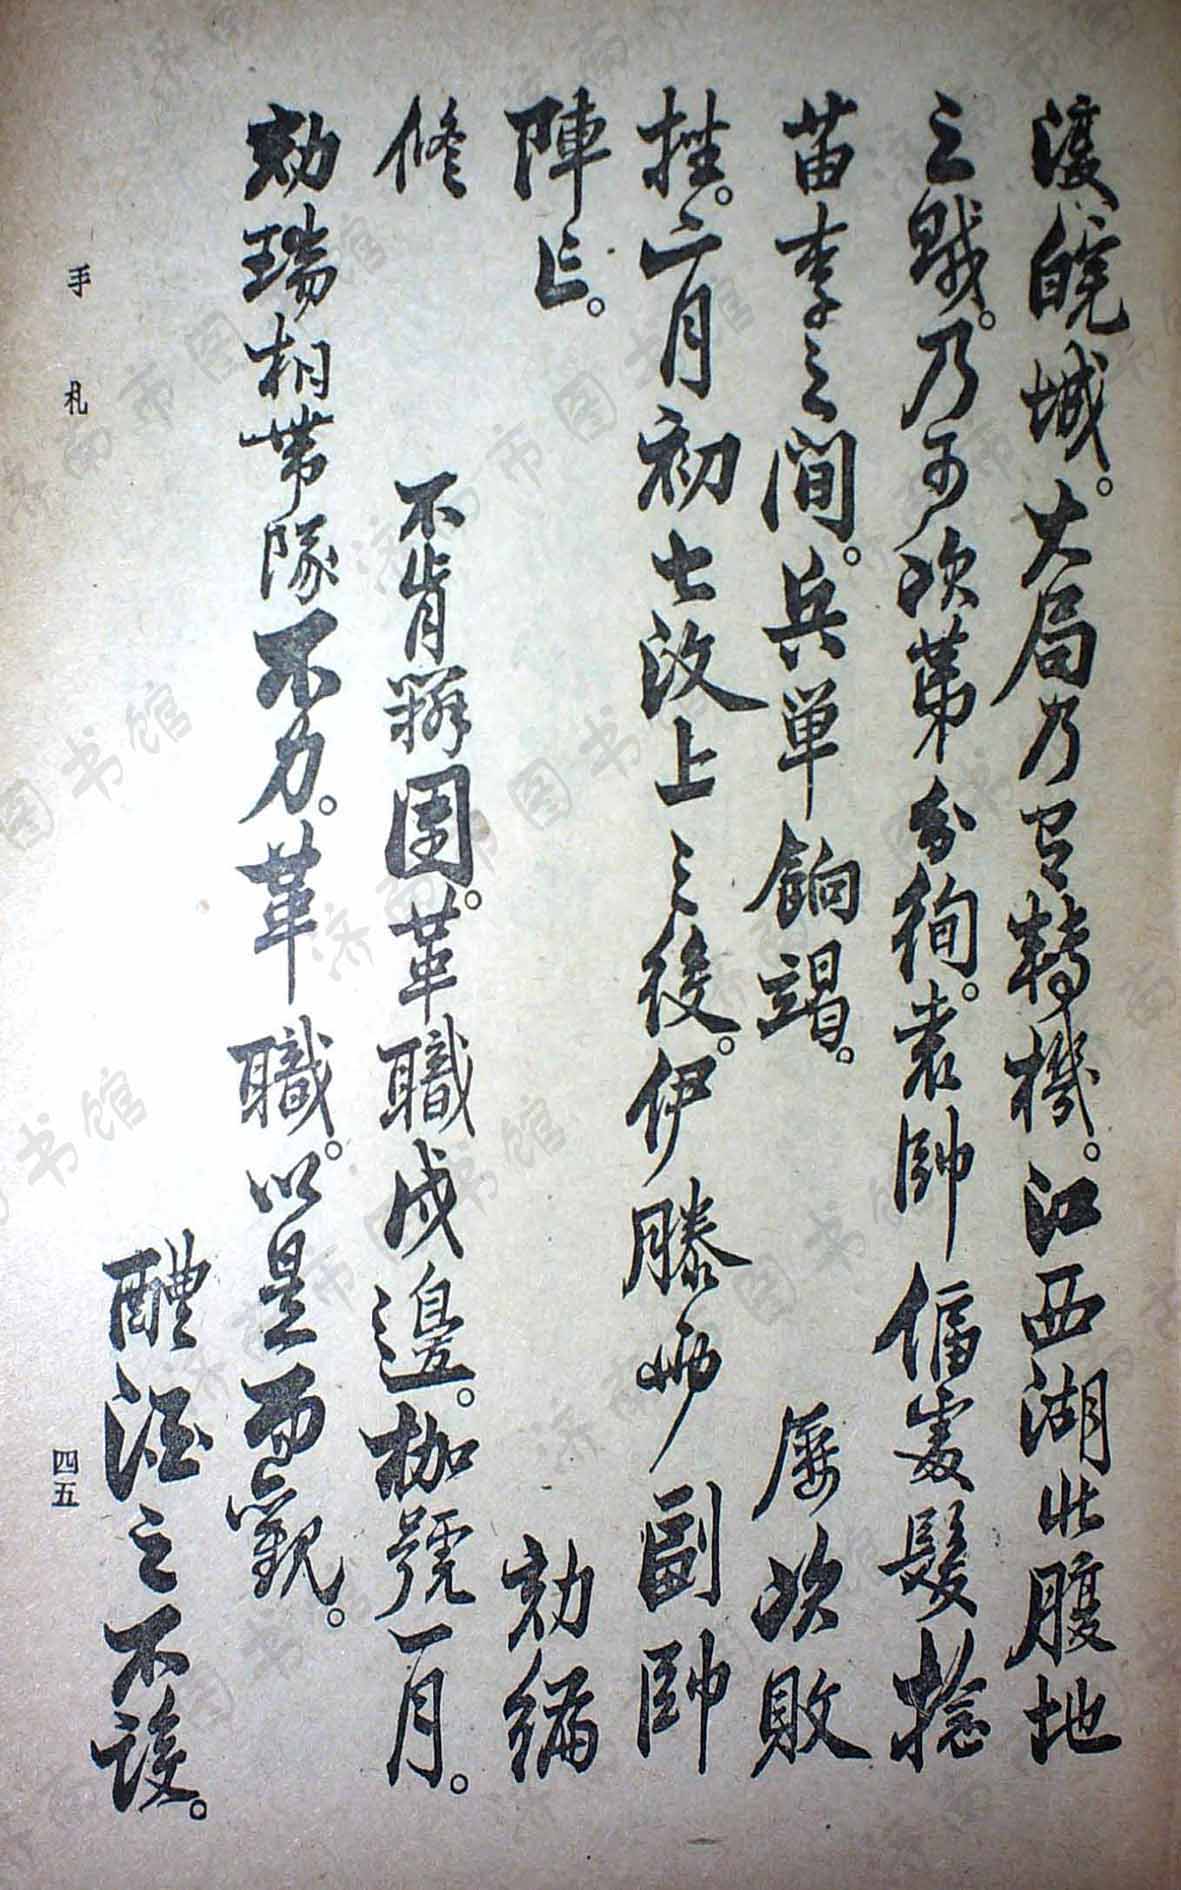 復皖城。大局乃有轉機。江西湖北腹地
之賊。乃可次第分徇。袁帥偪處髮捻
苗李之間。兵單餉竭。屢次敗
挫。二月初七汶上之後。伊滕兩副帥
陣亡。効編
修不肯辦團。革職戍邊。枷號一月。
効瑞相帶隊不力。革職。以是而觀。
醴泒之不諼。
手札
四五
济南市图书馆